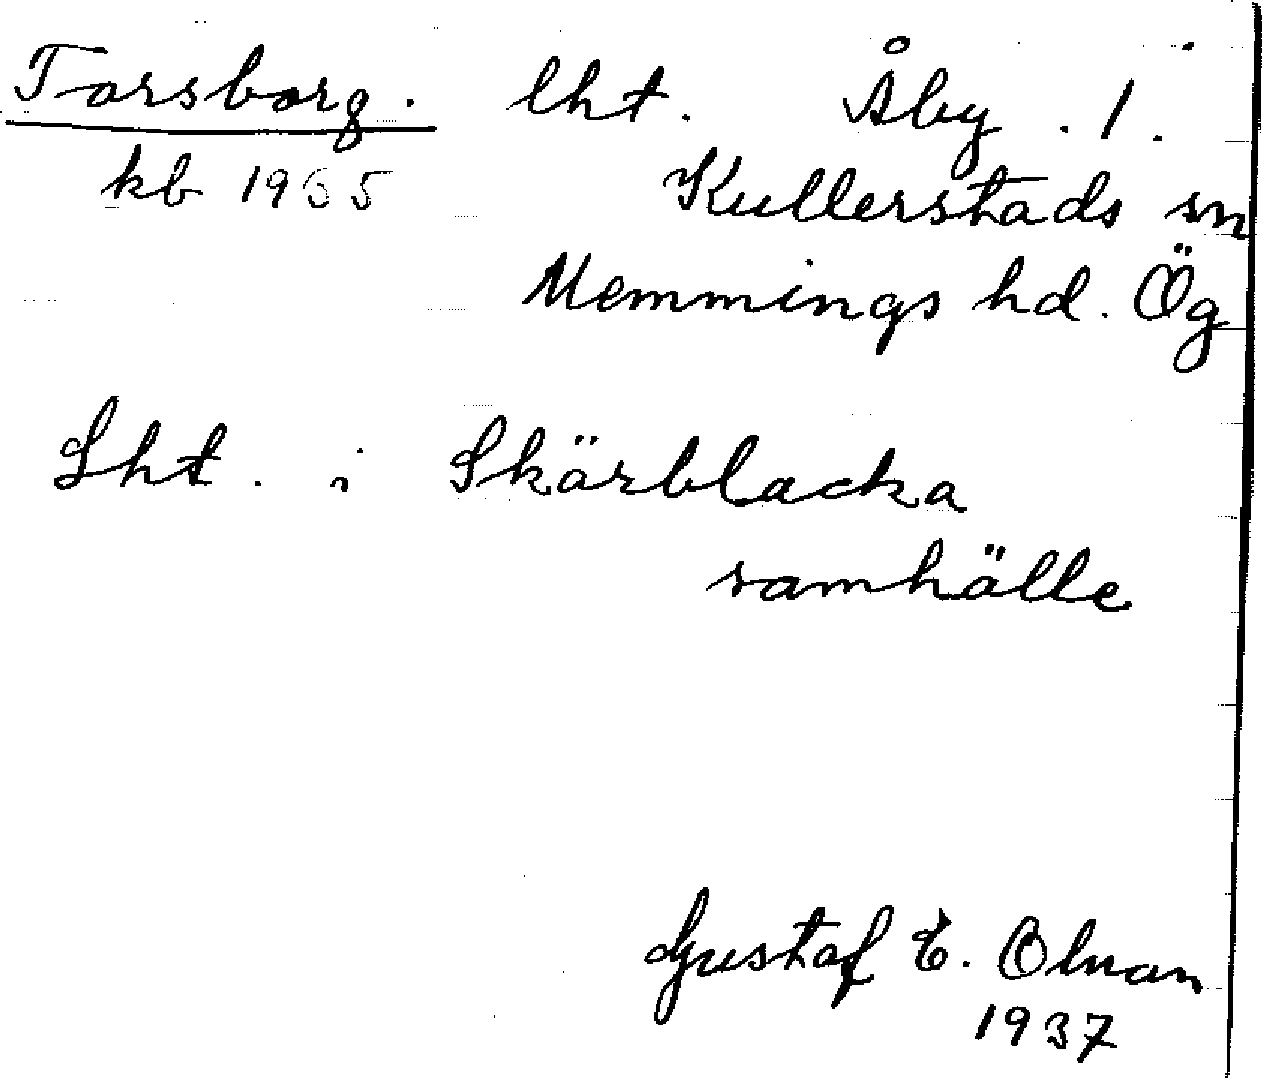 Torsborg. lht. Åby . 1.
kb 1935 Kullerstads sn
Memmings hd. Ög
Lht. i Skärblacka
samhälle
Gustaf E. Olman
1937